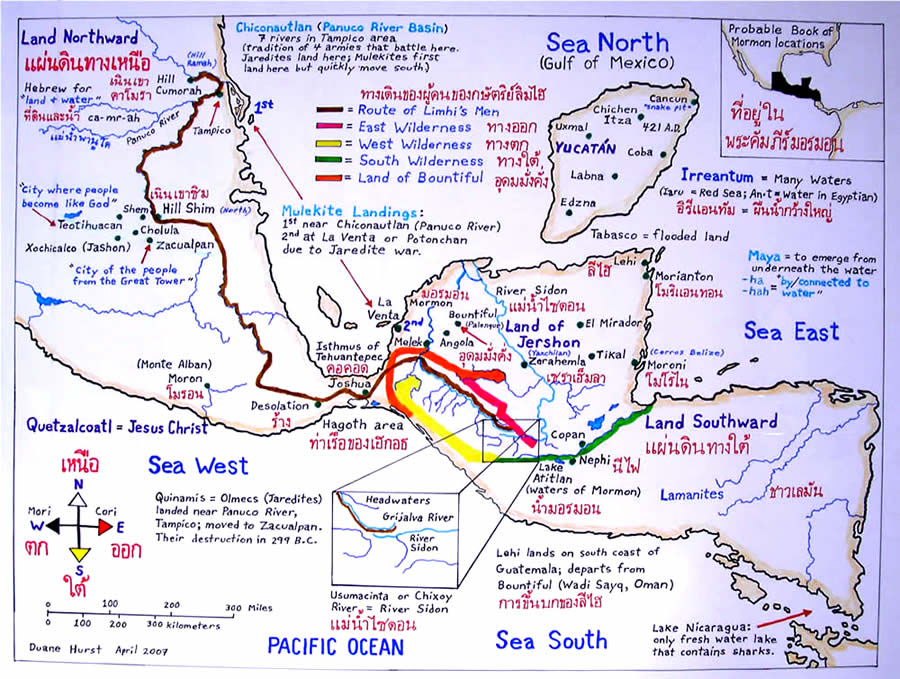 Land Northward
แผ่นดินทางเหนือ
Hebrew for
"land + water"
ที่ดินและน้ำ ca-mr-ah
แม่น้ำพานูโค
Panuco River
(Hill
Ramah)
Hill
Cumorah
เนินเขา
คาโมรา
Tampico
1st
Chiconautlan (Panuco River Basin)
7 rivers in Tampico area
(tradition of 4 armies that battle here.
Jaredites land here; Mulekites first
land here but quickly move south.)
ทางเดินของผู้คนของกษัตริย์ลิมไฮ
= Route of Limhi's Men
= East Wilderness ทางออก
= West Wilderness ทางตก
= South Wilderness ทางใต้
= Land of Bountiful อุดมมั่งคั่ง
Sea North
(Gulf of Mexico)
Cancun
"snake pit"
Chichen
Itza
421 A.D.
Uxmal
YUCATÁN
Coba
Labna
Edzna
Tabasco = flooded land
Probable Book of
Mormon locations
ที่อยู่ใน
พระคัมภีร์มอรมอน
Irreantum = Many Waters
(Iaru = Red Sea; Anit = Water in Egyptian)
อิรีแอนทัม = ผืนน้ำกว้างใหญ่
Maya = to emerge from
underneath the water
-ha "by/connected to
-hah = water"
Sea East
"City where people
become like God"
Teotihuacan
Xochicalco (Jashon)
เนินเขาชิม
Shem
Hill Shim (North)
Cholula
Zacualpan
"City of the people
from the Great Tower"
Mulekite Landings:
1st near Chiconautlan (Panuco River)
2nd at La Venta or Potonchan
due to Jaredite war.
La
Venta
2nd
มอรมอน
Mormon
Melek
Angola
Bountiful
(Palenque)
อุดมมั่งคั่ง
River Sidon
แม่น้ำไซดอน
Land of
Jershon
(Yaxchilan)
Zarahemla
เซราเฮ็มลา
ลีไฮ
Lehi
Morianton
โมริแอนทอน
El Mirador
Tikal
(Cerros Belize)
Moroni
โมโรไน
Isthmus of
Tehuantepec
คอคอด
Joshua
(Monte Alban)
Moron
โมรอน
Desolation
ร้าง
Hagoth area
ท่าเรือของเฮักอธ
Quetzalcoatl = Jesus Christ
Sea West
Land Southward
แผ่นดินทางใต้
Lamanites
ชาวเลมัน
Copan
Nephi นีไฟ
Lake
Atitlan
(waters of Mormon)
น้ำมอรมอน
เหนือ
N
Mori
W
Cori
E
ตก
ออก
S
ใต้
Quinamis = Olmecs (Jaredites)
landed near Panuco River,
Tampico; moved to Zacualpan.
Their destruction in 299 B.C.
Headwaters
Grijalva River
River
Sidon
Usumacinta or Chixoy
River = River Sidon
แม่น้ำไซดอน
Lehi lands on south coast of
Guatemala; departs from
Bountiful (Wadi Sayq, Oman)
การขึ้นบกของลีไฮ
0 100 200 300 Miles
0 100 200 300 kilometers
Duane Hurst April 2007
PACIFIC OCEAN
Sea South
Lake Nicaragua:
only fresh water lake
that contains sharks.